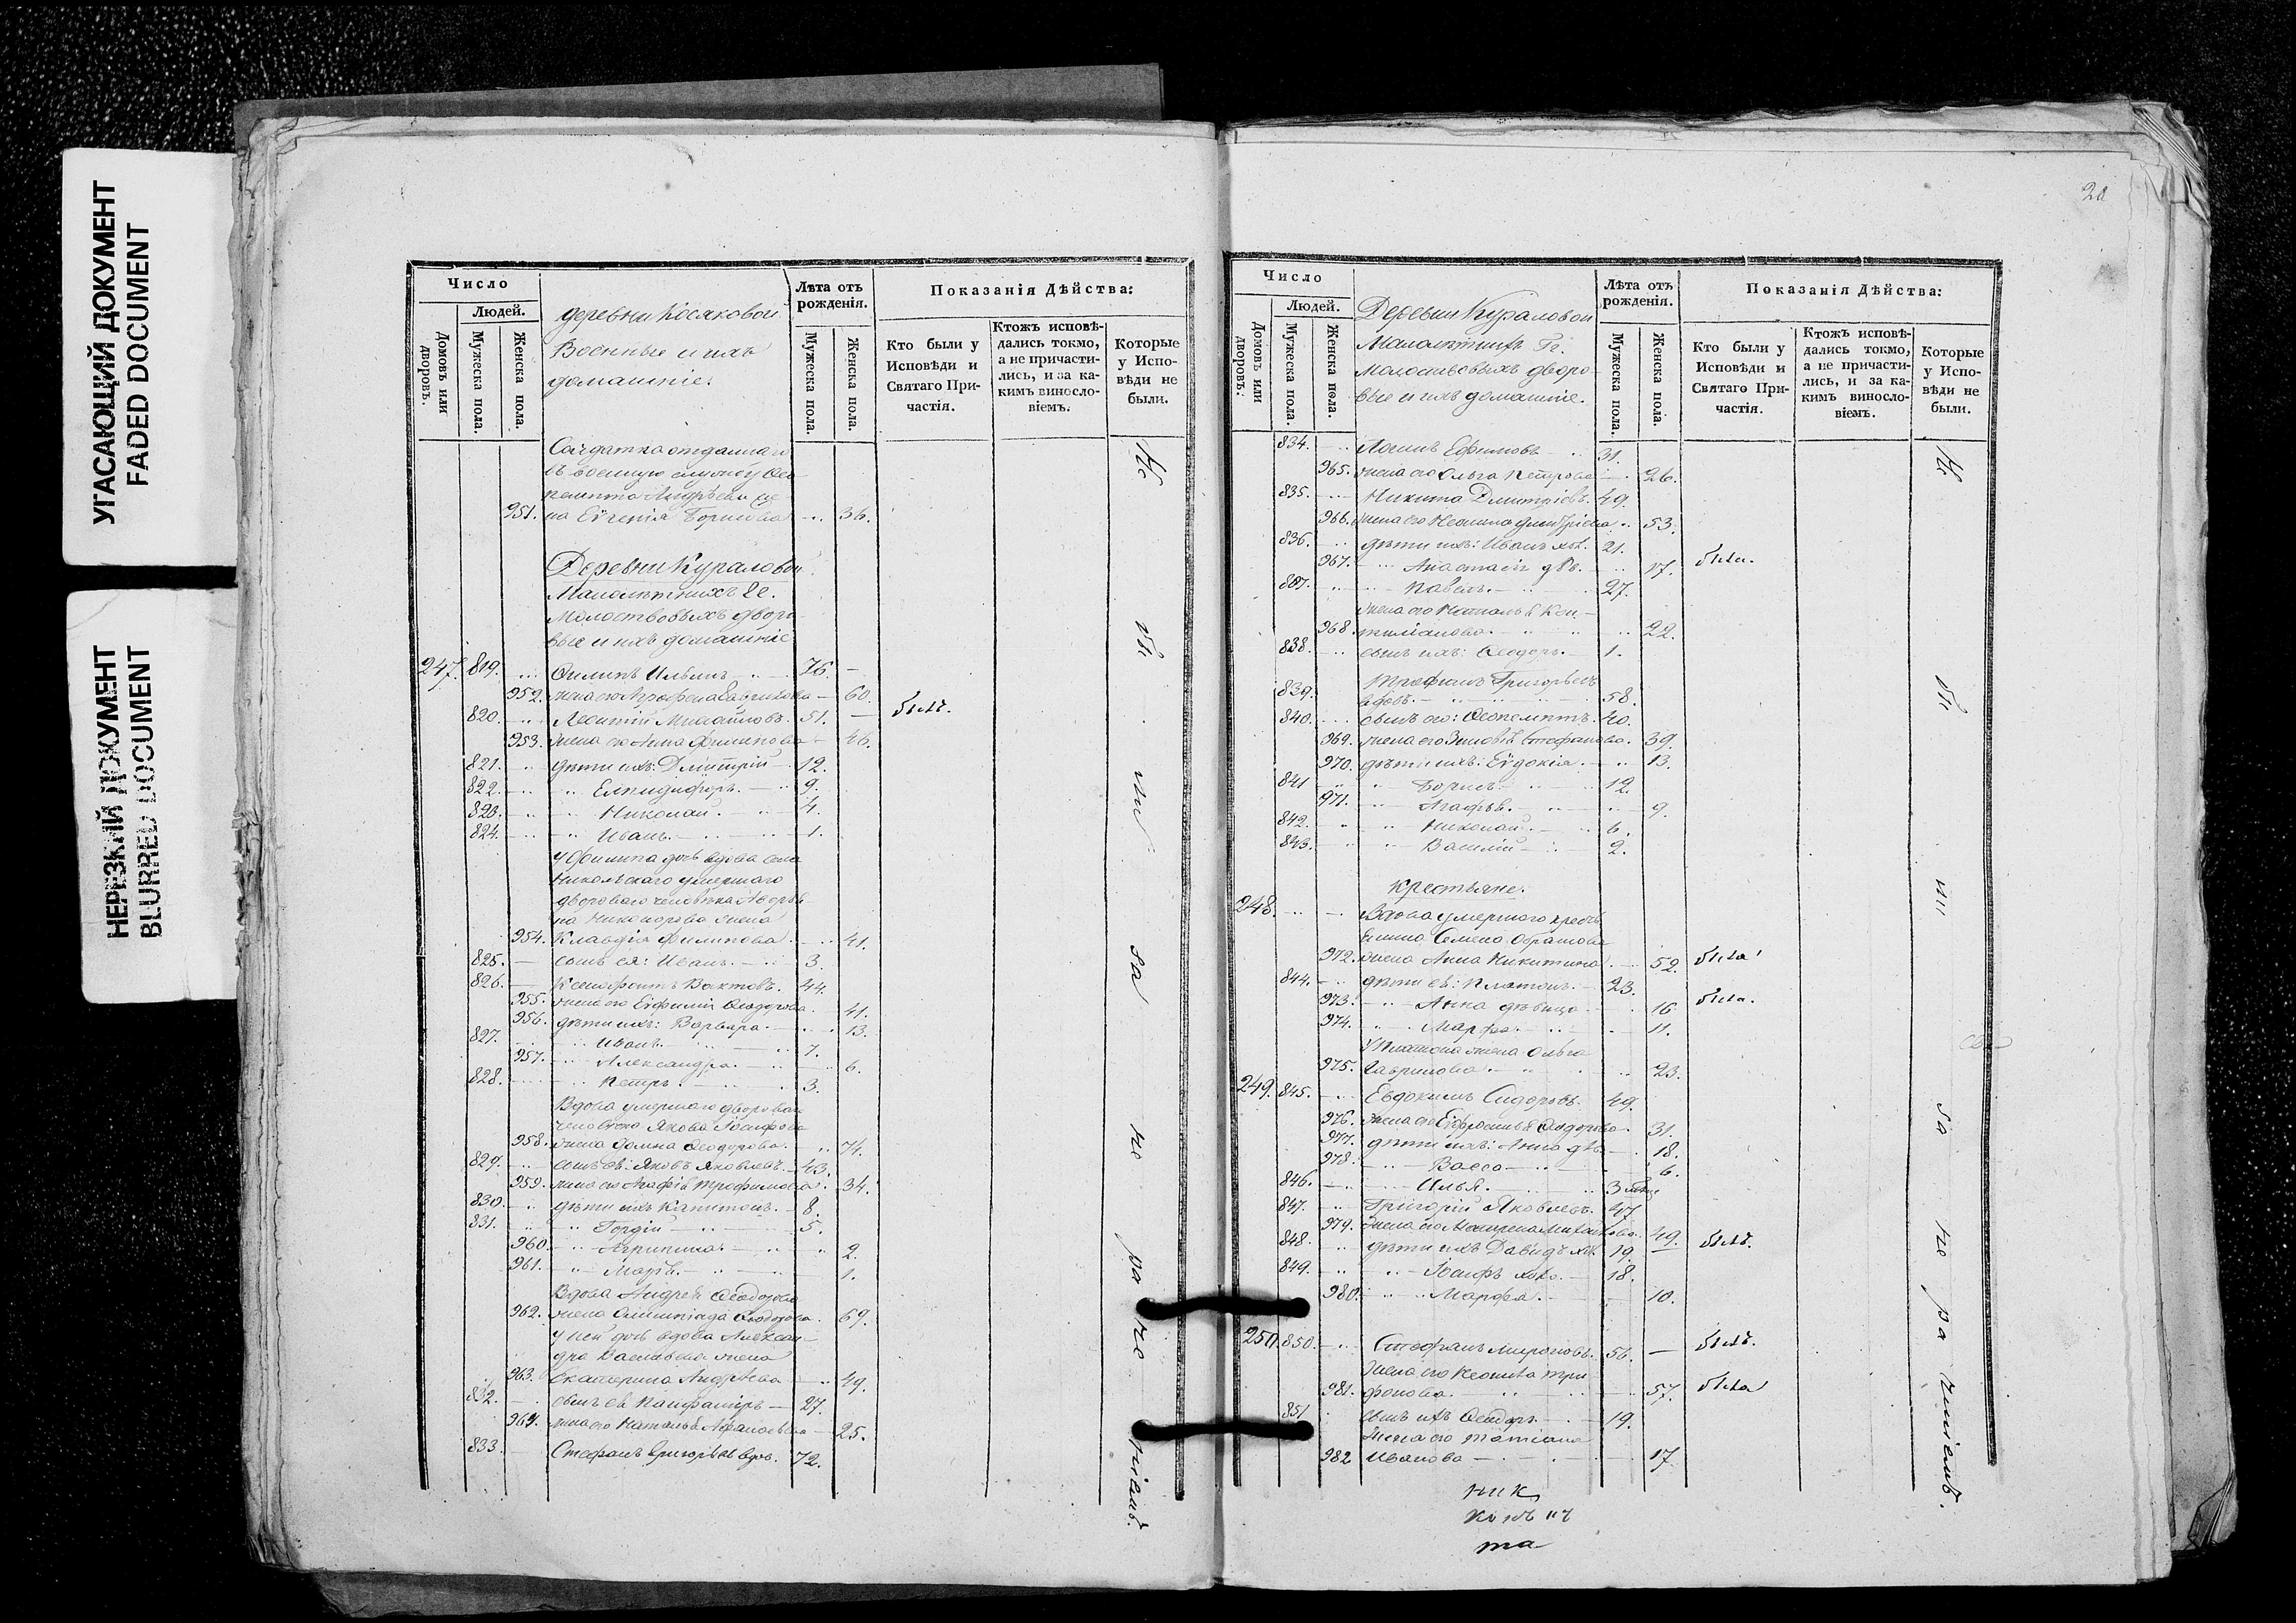 УГАСАЮЩИЙ ДОКУМЕНТ
FADED DOCUMENT
НЕРЕЗКИЙ ДОКУМЕНТ
BLURRED DOCUMENT
Число
Людей.
Домовъ или дворовъ.
Мужеска пола.
Женска пола.
деревни Косяковой
Военные и ихъ
домашніе.
Лѣта отъ рожденія.
Мужеска пола.
Женска пола.
Показанія Дѣйства:
Кто были у Исповѣди и Святаго Причастія.
Ктожъ исповѣдались токмо, а не причастились, и за какимъ винословіемъ.
Которые у Исповѣди не были.
Солдатка отданнаго
въ военную службу Ѳео
пемпта Андрѣева же
951. на Евгенія Борисова 36.
Деревни Кураловой
Малолѣтнихъ Гг.
Молоствовыхъ дворо
вые и ихъ домашніе
247. 819. Филипъ Ильинъ 76.
952. жена его Агрофена Гаврилова 60.
820. Леонтій Михайловъ. 51. былъ.
953. жена его Анна Филипова 46.
821. дѣти ихъ: Дмитрій 12.
822. Елпидифоръ. 9.
823. Николай. 4.
824. Иванъ. 1.
У Филипа дочь вдова села
Никольскаго умершаго
двороваго человѣка
на Никонорова жена
954. Клавдія Филипова 41.
825. сынъ ея: Иванъ. 3.
826. Ксенофонтъ 44.
955. жена его Евфимія Ѳеодорова. 41.
956. дѣти ихъ: Варвара. 13.
827. Иванъ. 7.
957. Александра. 6.
828. Петръ. 3.
Вдова умершаго дворова
человѣка Якова Іосифова
958. жена Домна Ѳеодорова. 74.
829. сынъ ея: Яковъ Яковлевъ. 43.
959. жена его Агафія Трофимова 34.
830. дѣти ихъ Капитонъ. 8.
831. Гордій 5.
960. Агрипина 2.
961. Марія. 1.
Вдова Андрея Ѳеодорова
962. жена Олимпіада Ѳеодорова. 69.
у ней дочь вдова Алексан
дра Васильева жена
963. Екатерина Андрѣева 49.
832. сынъ ея 27.
964. жена его Наталья Афанасьева 25.
833. Стефанъ Григорьевъ вдов. 72.
Не бы ли за не ра че ніемъ.
20
Число
Людей.
Домовъ или дворовъ:
Мужеска пола.
Женска пола.
Деревни Кураловой
Малолѣтнихъ Гг.
Молоствовыхъ дворо
вые и ихъ домашніе.
Лѣта отъ рожденія.
Мужеска пола.
Женска пола.
Показанія Дѣйства:
Кто были у Исповѣди и Святаго Причастія.
Ктожъ исповѣдались токмо, а не причастились, и за какимъ винословіемъ.
Которые у Исповѣди не были.
834. Ефимовъ 31.
965. жена его Ольга Петрова 26.
835. Никита Дмитріевъ. 49.
966. жена его Неонила Дмитріева 53.
836. дѣти ихъ: Иванъ хол. 21.
967. Анастасія дѣв. 17. была.
837. Павелъ. 27.
жена его Наталья Кон
968. 22.
838. сынъ ихъ: Ѳеодоръ. 1.
Трофимъ Григорьевъ
839. вдовъ. 58.
840. сынъ его: Ѳеопемптъ. 40.
969. жена его Зиновія Стефанова. 39.
970. дѣти ихъ: Евдокія. 13.
841 Борисъ. 12.
971. Агафья. 9.
842. Николай. 6.
843. Василій 2.
Крестьяне.
248. Вдова умершаго крестья
нина Семена
972. жена Анна Никитина. 52. была
844. дѣти ея: Платонъ. 23.
973. Анна дѣвица 16 была.
974. Марфа. 11.
У Платона жена Ольга
975. Гаврилова. 23.
249. 845. Евдокимъ Сидоровъ. 49.
976. жена его Евфросинья Ѳеодорова. 31.
977. дѣти ихъ: Анна дѣв 18.
978. Васса 6.
846. Илья. 3
847. Григорій Яковлевъ. 47
979. жена его Матрена Михайлова. 49.
848. дѣти ихъ Давидъ хол. 19. былъ.
849. Іосифъ хол. 18.
980. Марфа. 10.
250. 850. Стефанъ Мироновъ. 56. былъ.
жена его Неонила Три
981. фонова. 57. была
851 сынъ ихъ Ѳеодоръ. 19.
жена его Татіана
982 Иванова 17
Не бы ли за не ра ченіемъ.
ник
та